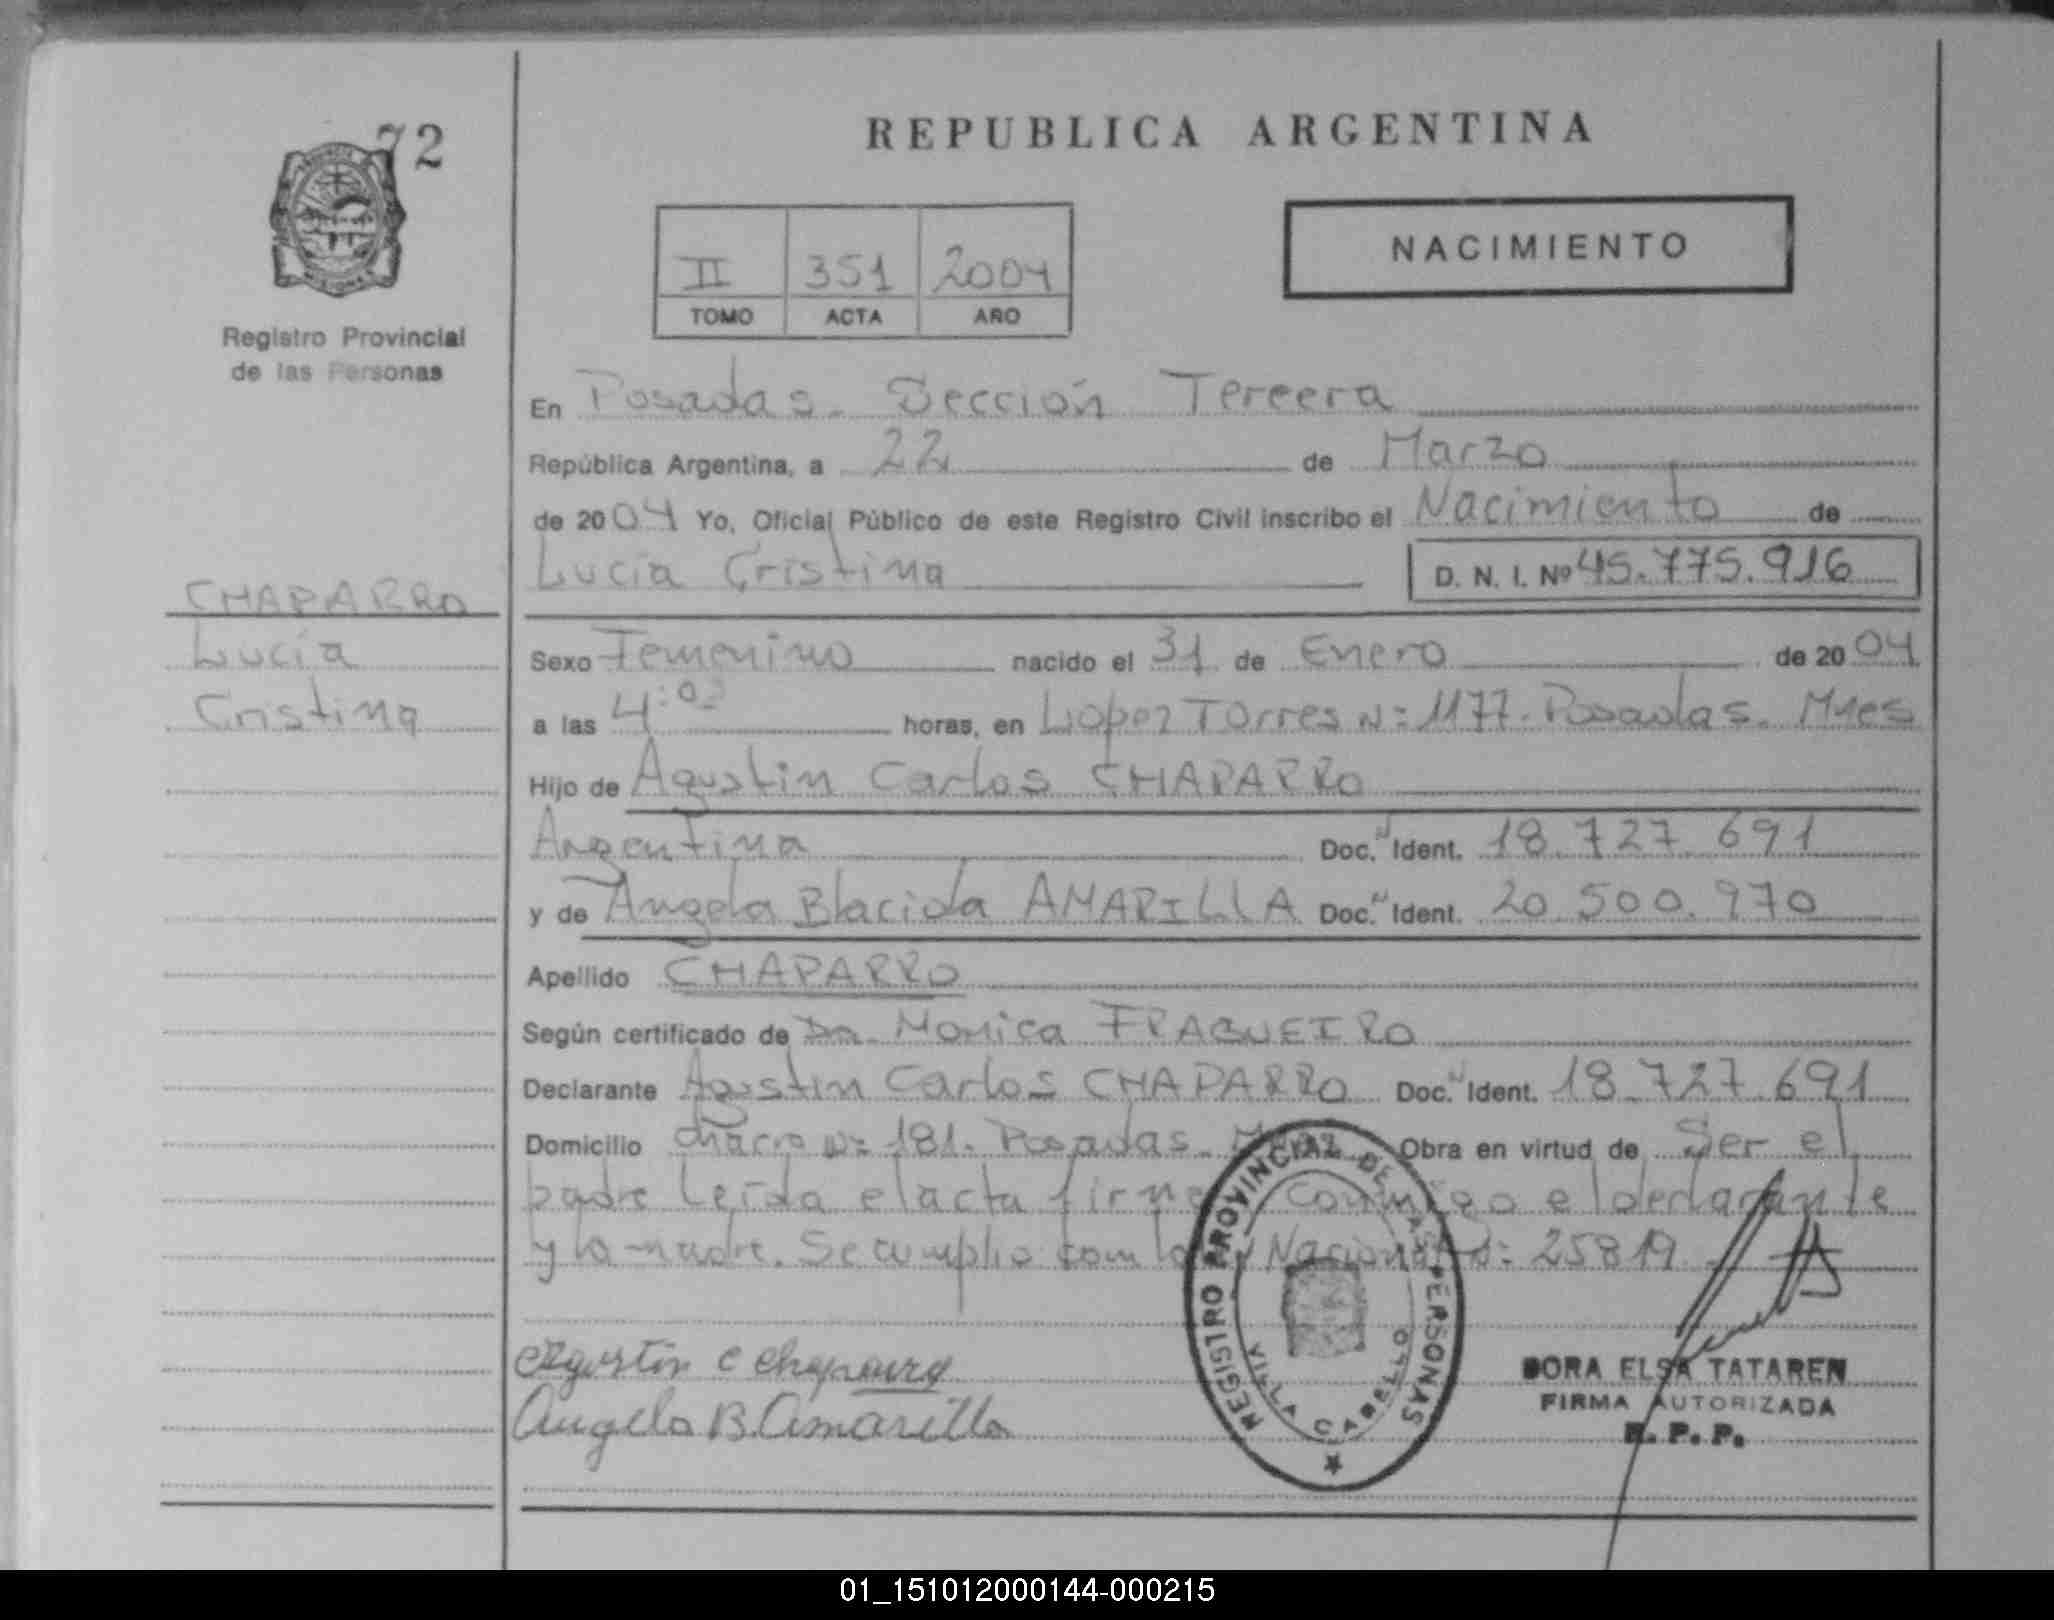 72
REPUBLICA ARGENTINA
NACIMIENTO
II 351 2004
TOMO ACTA AÑO
Registro Provincial
de las Personas
En Posadas. Sección Tercera
República Argentina, a 22 de Marzo
de 2004 Yo, Oficial Público de este Registro Civil inscribo el Nacimiento de
Lucía Cristina D. N. I. Nº 45.775.916
CHAPARRO
Lucía
Cristina
Sexo Femenino nacido el 31 de Enero de 2004
a las 4:00 horas, en Lopez Torres Nº 1177. Posadas. Mnes
Hijo de Agustin Carlos CHAPARRO
Argentina Doc. N Ident. 18.727.691
y de Angela Blacida AMARILLA Doc. N Ident. 20.500.970
Apellido CHAPARRO
Según certificado de Dra. Monica FRAGUEIRO
Declarante Agustin Carlos CHAPARRO Doc. N Ident. 18.727.691
Domicilio Nº 181. Posadas. Obra en virtud de Ser el
padre Leída el acta conmigo el declarante
y la madre. Se cumplio com Nacional Nº: 25819
Agustin C Chaparro
Angela B. Amarilla
REGISTRO PROVINCIAL DE LAS PERSONAS
VILLA CABELLO
DORA ELSA TATAREN
FIRMA AUTORIZADA
R. P. P.
01_151012000144-000215